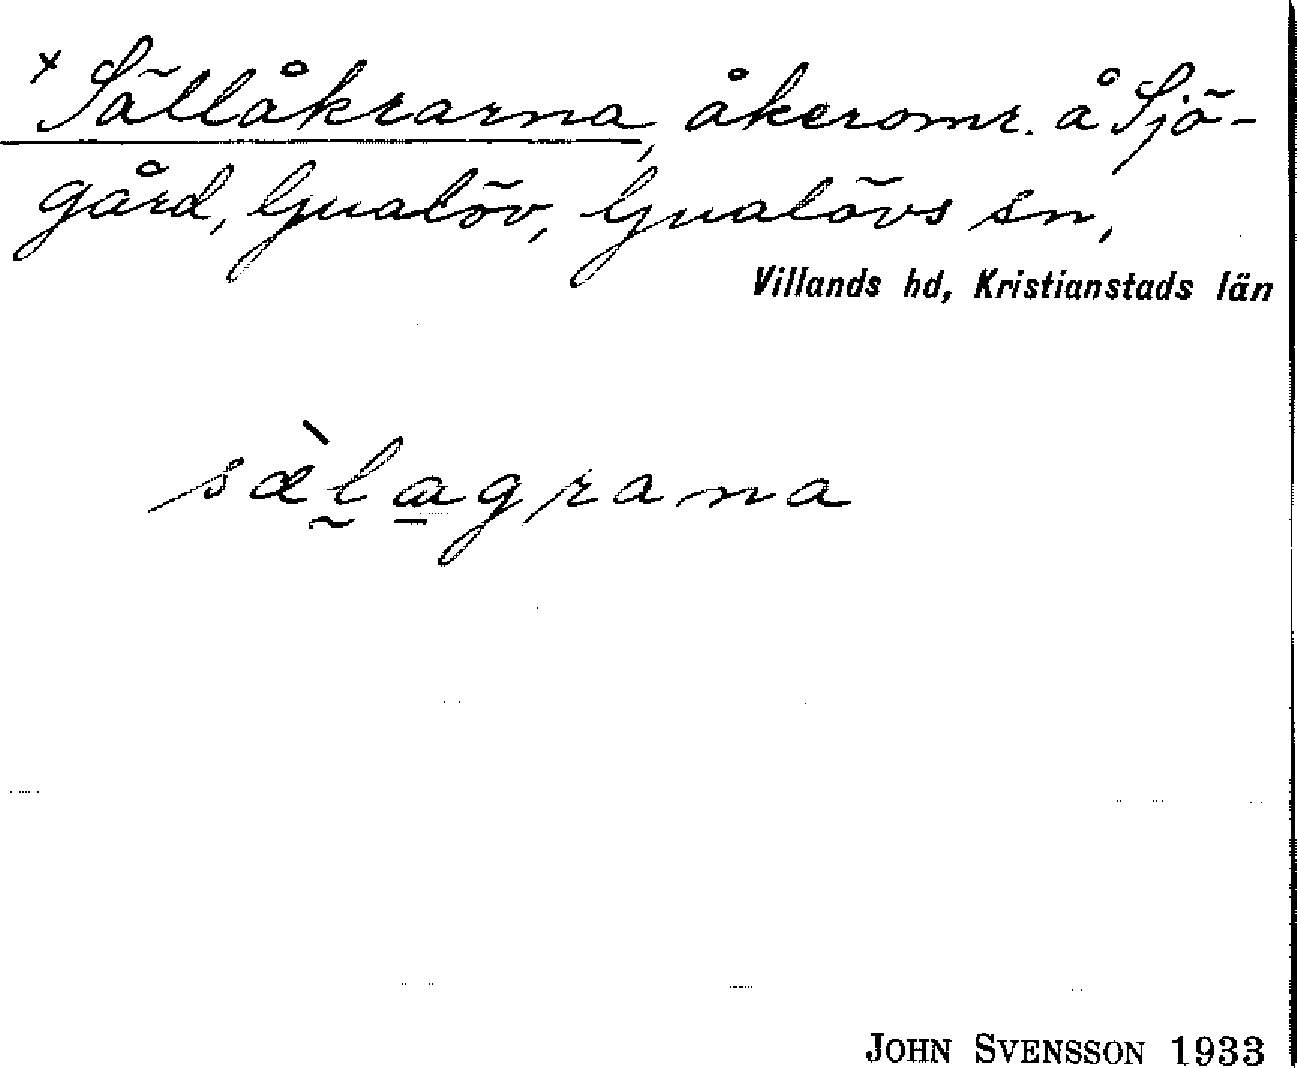 × Sällåkrarna, åkeromr. å Sjö-
gård, Gualöv, Gualövs sn,
Villands hd, Kristianstads län
sæ̀l̰a̱grana
JOHN SVENSSON 1933